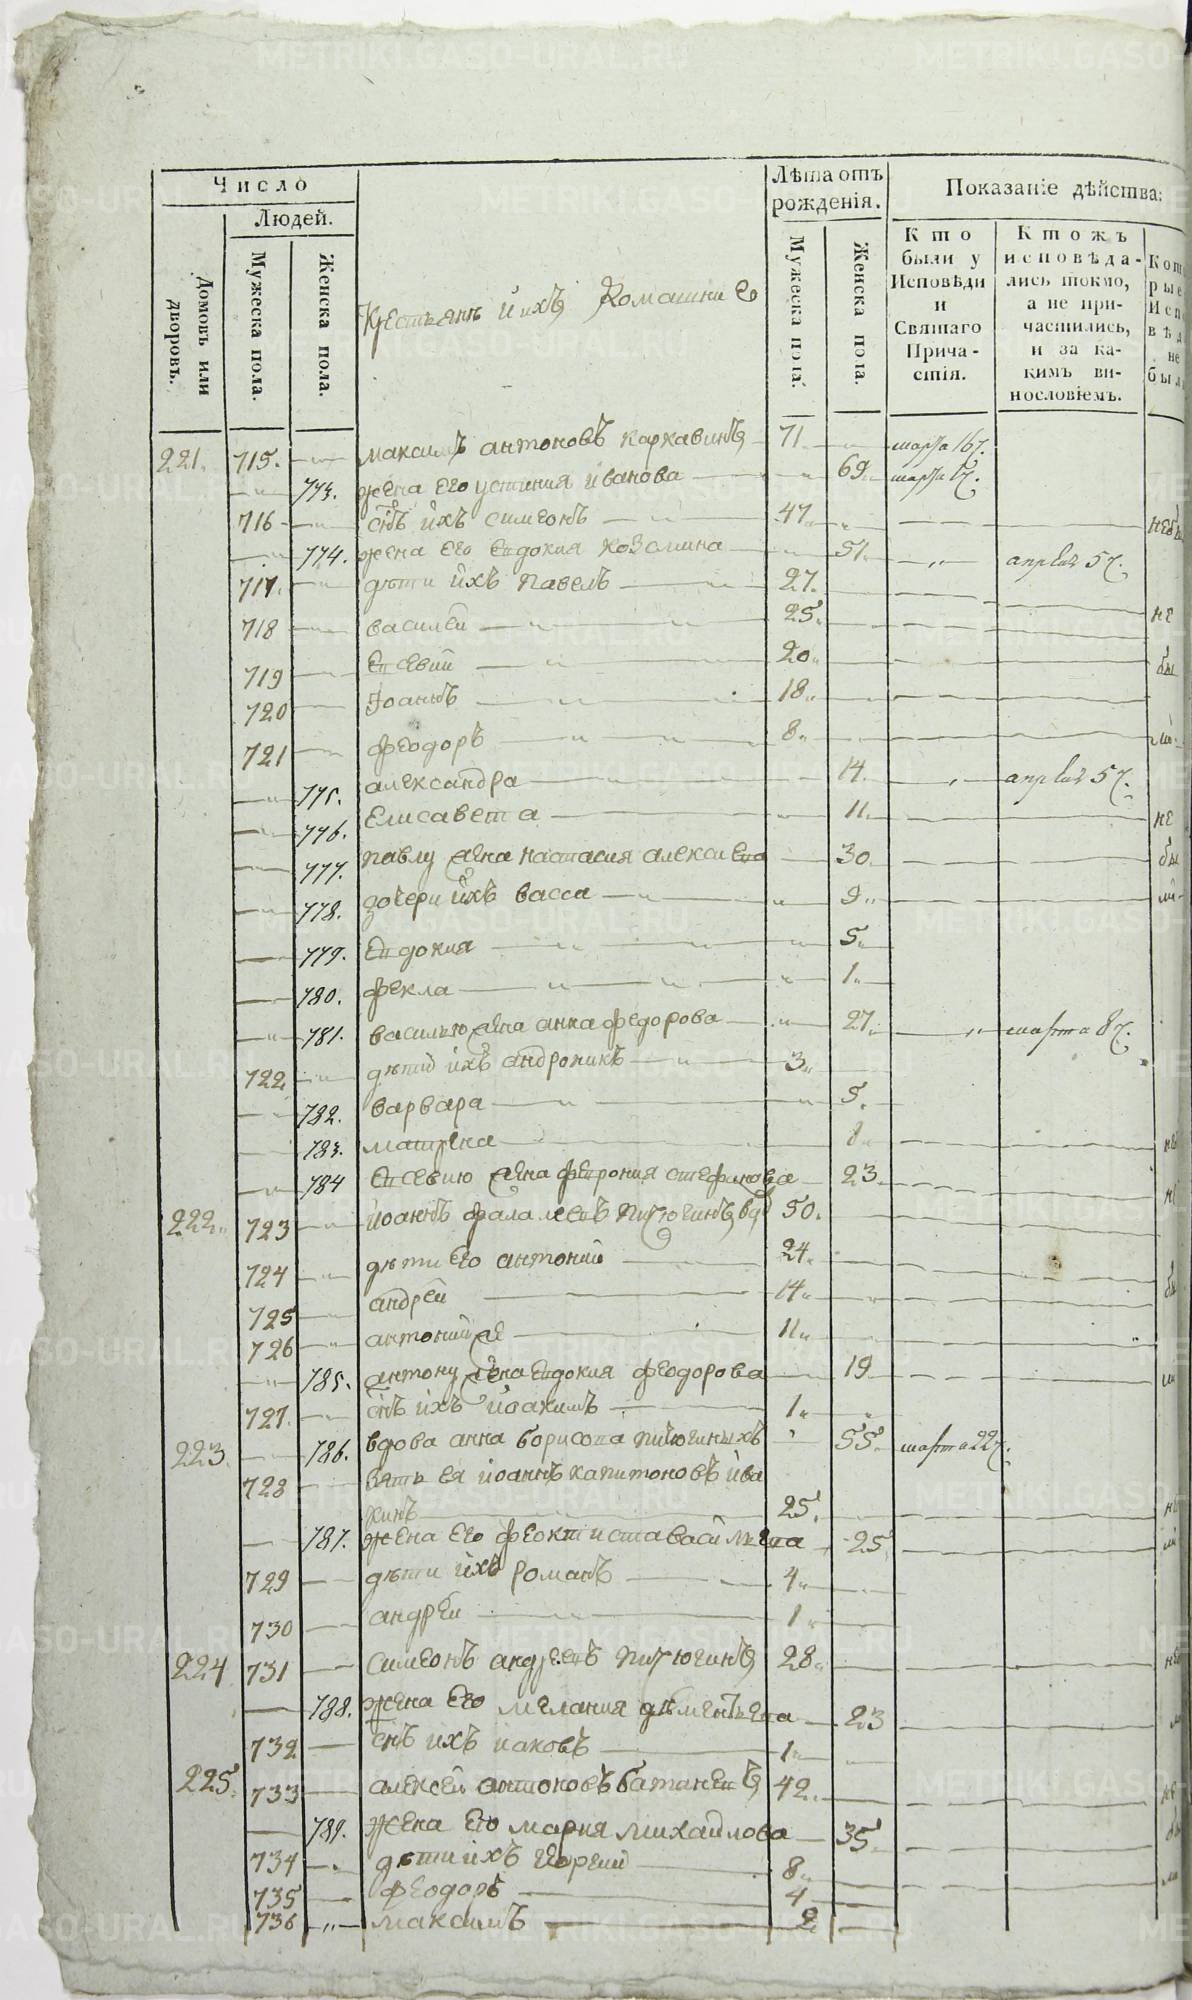 Число
Людей.
Домовъ или дворовъ.
Мужеска пола.
Женска пола.
Крестьянъ и ихъ Домашние
Лѣта отъ рожденія.
Мужеска пола.
Женска пола.
Показаніе дѣйства:
Кто были у Исповѣди и Святаго Причастія.
Ктожъ исповѣдались токмо, а не причастились, и за какимъ винословіемъ.
Которые Исповѣд не был
221. 715. максимъ антоновъ каркавинъ 71. марта 16
773. жена его устиния иванова 69. марта
716 снъ ихъ симеонъ 47.
774. жена его евдокия козмина 51.
717. дѣти ихъ павелъ 27.
718 василей 25.
719 евсевий 20
720 Iоаннъ 18
721 феодоръ 8
775. александра 14.
776. Елисавета 11.
777. павлу жена настасия алексиева 30
778. дочери ихъ васса 9
779. Евдокия 5
780. фекла 1
781. василью жена анна федорова 27 марта 8
722 дѣтй ихъ андроникъ 3
782. варвара 5.
783. матрена
784 евсевию жена феврония стефанова 23
222 723 иоаннъ фалалеевъ питюгинъ 50.
724 дѣти его антоний 24
725 андрей 14
726 антоний же 11
785. антону жена евдокия феодорова 19
727 снъ ихъ иоакимъ 1
223 786. вдова анна борисова питюгиныхъ 55 марта 22
728 зять ея иоаннъ капитоновъ ива
кинъ 25
787. жена его феоктиста васильева 25
729 дѣти ихъ романъ 4
730 андрей 1
224 731 симеонъ андреевъ питюгинъ 28
788. жена его мелания дементьева 23
732 снъ ихъ иаковъ 1
225. 733 алексей антоновъ батаневъ 42.
789. жена его мария михайлова 35
734 дѣти ихъ 8
735 феодоръ 4
736 максимъ 2
METRIKI.GASO-URAL.RU